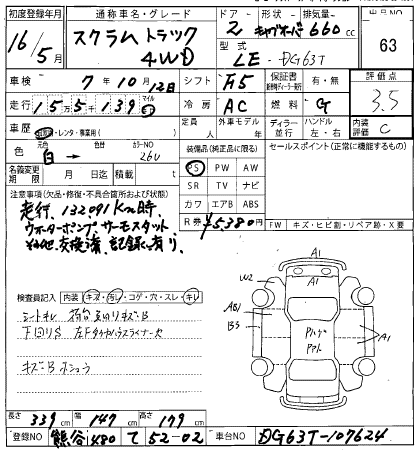 初度登録年月 通称車名・グレード ドア 形状 排気量 出品NO
16年 5月 スクラムトラック 4WD 2 キャブオーバ 660cc 63
型式 LE-DG63T
車検 7年10月12日 シフト F5 保証書 有・無 評価点
走行 155139 マイル km 冷房 AC 燃料 G 3.5
車歴 自家・レンタ・事業用( ) 定員 人 外車モデル 年 ディラー 並行 ハンドル 左・右 内装評価 C
色 白 → 色替 カラーNO 26U 装備品(純正品に限る) セールスポイント(正常に機能するもの)
名義変更期限 月 日迄 積載 t PS PW AW
注意事項(欠品・修復・不具合箇所および状態) SR TV ナビ
走行、132091Km時、 カワ エアB ABS
ウォーターポンプ、サーモスタット R券 ¥5,380
その他交換済、記録くん有り FW キズ・ヒビ割・リペア跡・X要
検査員記入 内装 キズ・汚レ・コゲ・穴・スレ・キレ
シートキレ
下回りS 左Fタイヤハウスライナー欠
キズB
A1
W2 A1
AB1
B3
A1
長さ 339cm 幅 147cm 高さ 179cm
登録NO 熊谷 480 て 52-02 車台NO DG63T-107624